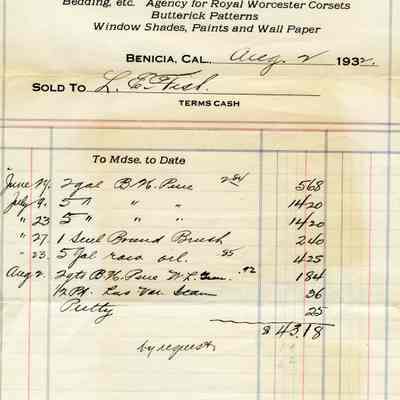 Bedding, etc. Agency for Royal Worcester Corsets
Butterick Patterns
Window Shades, Paints and Wall Paper
BENICIA, CAL. Aug. 2 1932.
SOLD TO L. E. Fish.
TERMS CASH
To Mdse. to Date
June 29. 2 gal B. H. Pure 2 84 568
July 9. 5 " " " 1420
" 23 5 " " " 1420
" 27. 1 Brand Brush 240
" 23. 5 Gal raw oil. 85 425
Aug 2. 2 qts B. H. Pure 92 184
1/2 Pt. Var. 36
Putty 25
$ 43.18
by request